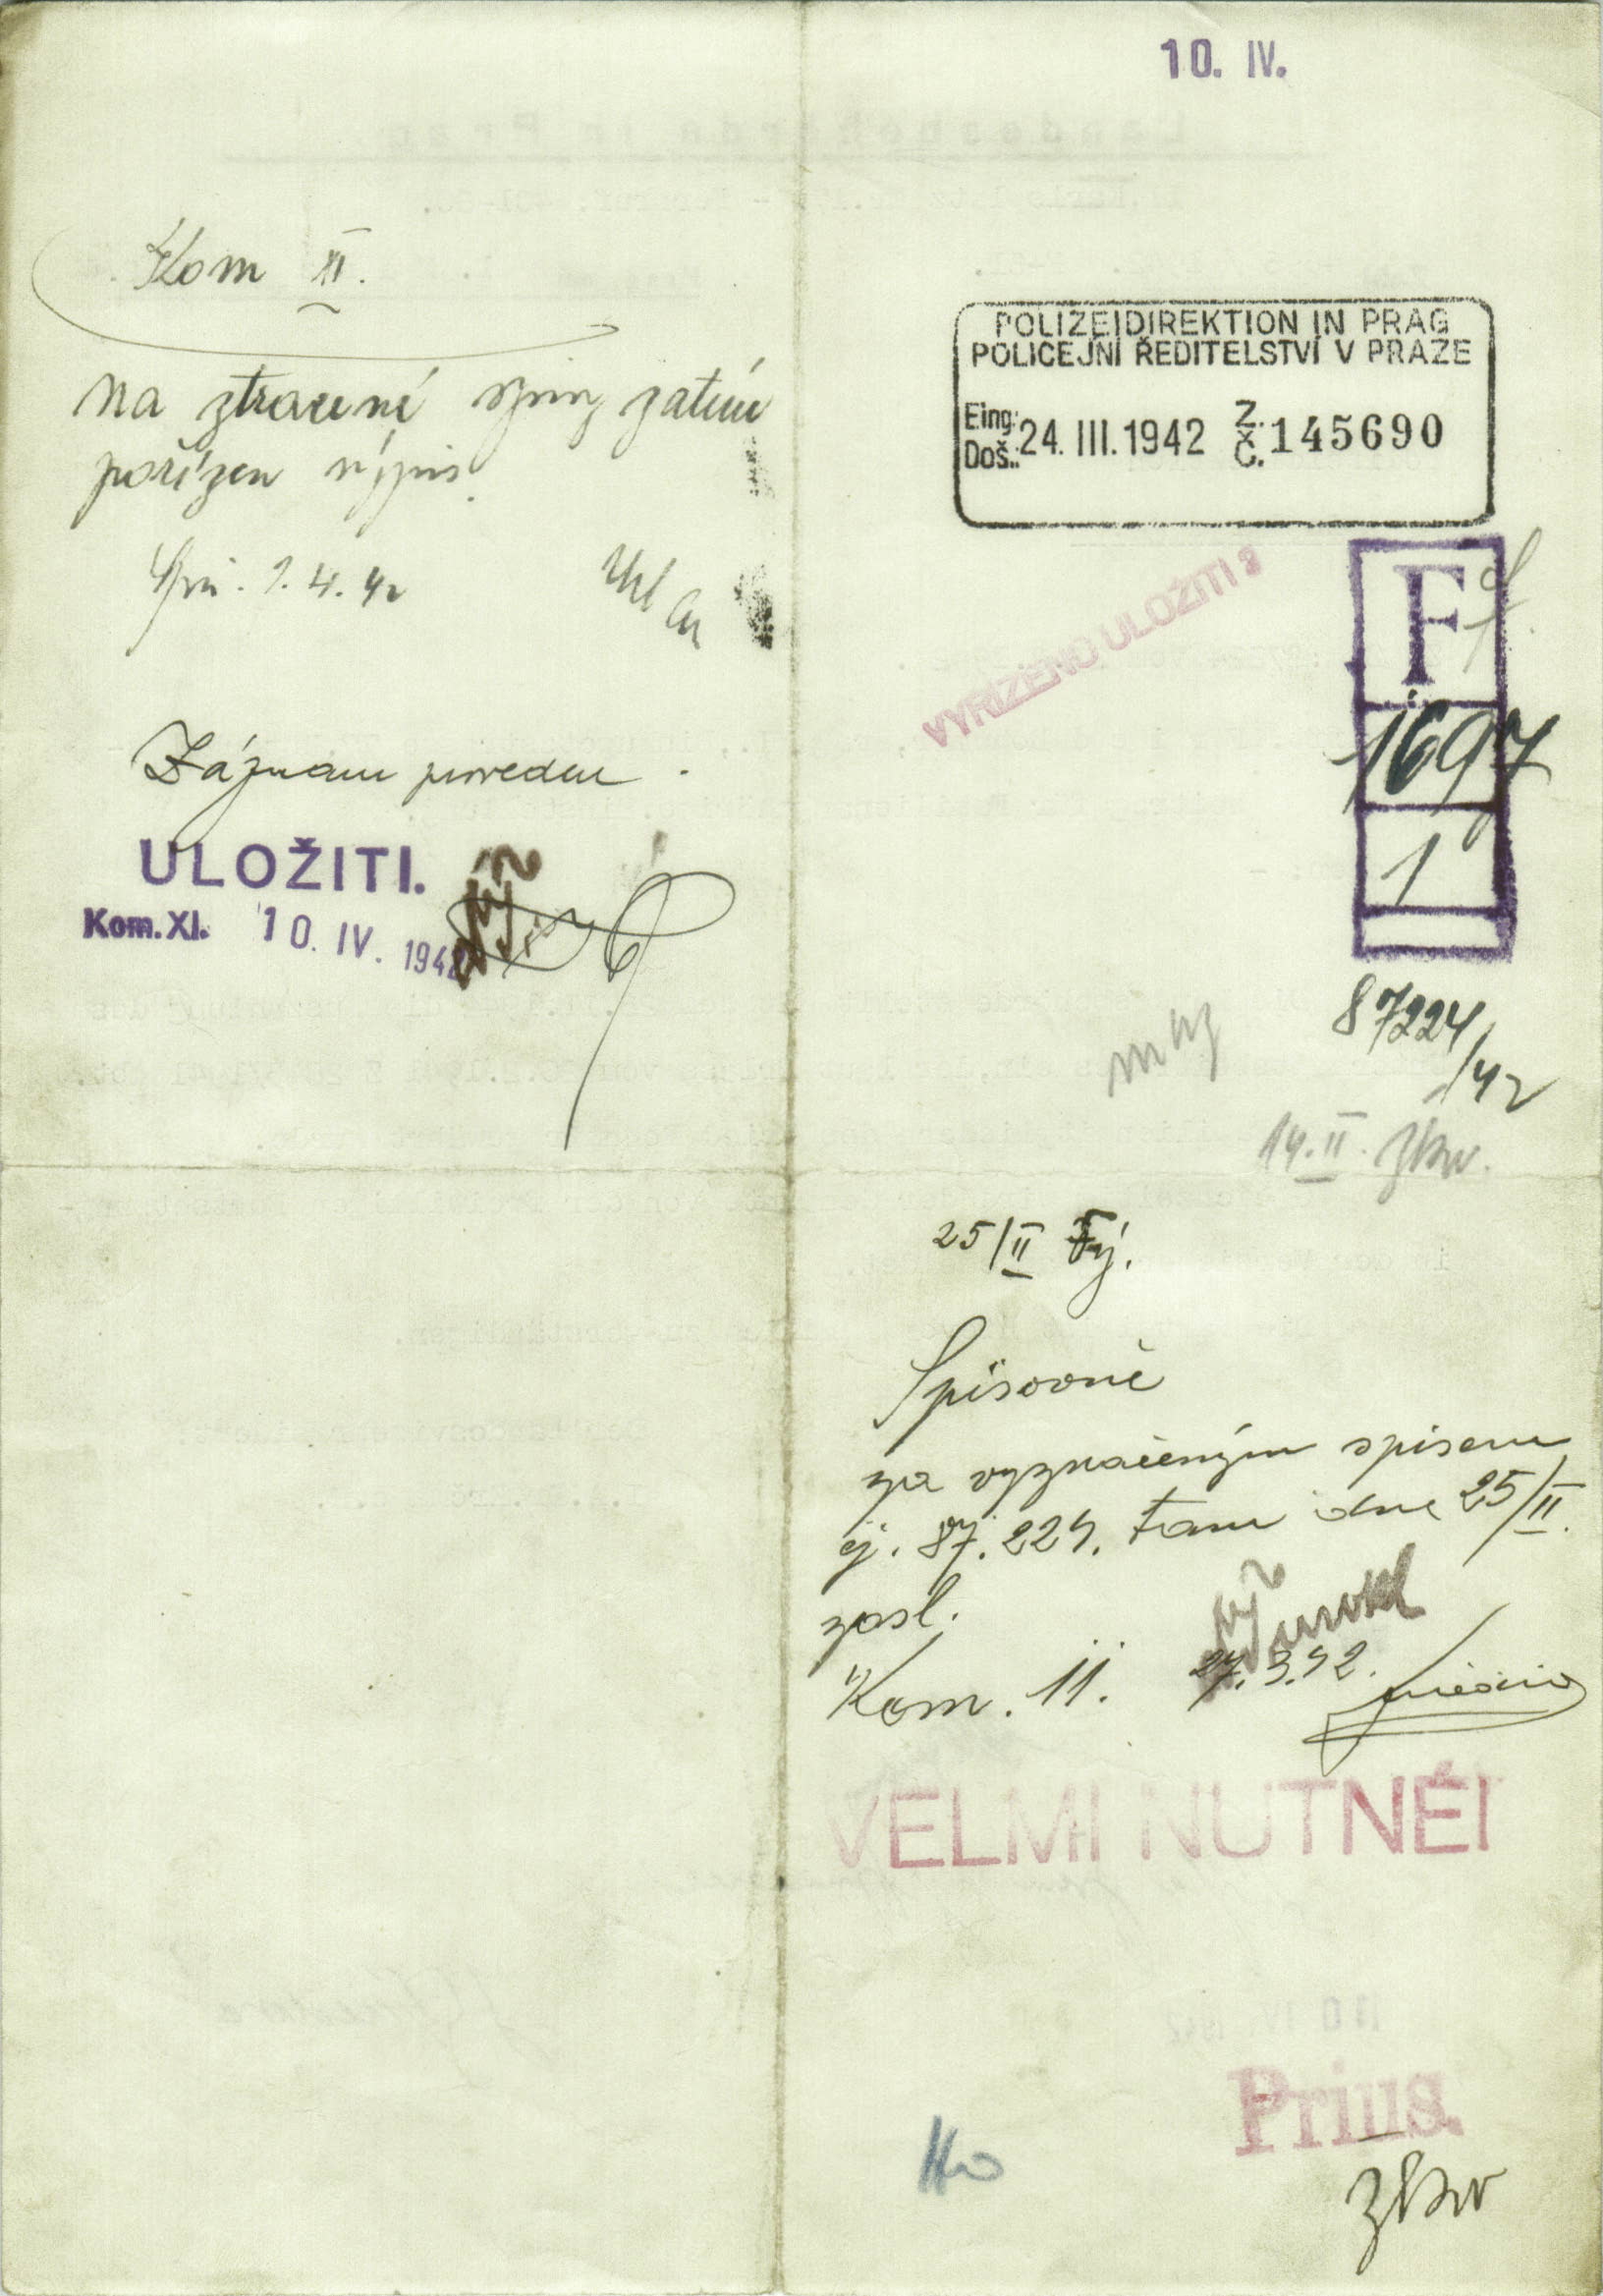 10. IV.
Kom II.
na ztracené spisy zatím
pořízen výpis.
1. 4. 42
Záznam proveden.
ULOŽITI.
Kom. XI. 10. IV. 1942
POLIZEIDIREKTION IN PRAG
POLICEJNÍ ŘEDITELSTVÍ V PRAZE
Eing: Z.
Doš.: 24. III. 1942 Č. 145690
VYŘÍZENO ULOŽITI
F
1697
1
87224
/42
14. II.
25/II
Spisovně
za vyznačeným spisem
čj. 87.224. tam dne 25/II.
zasl.
Kom. 11. 27.3.42.
VELMI NUTNÉ!
Prius.